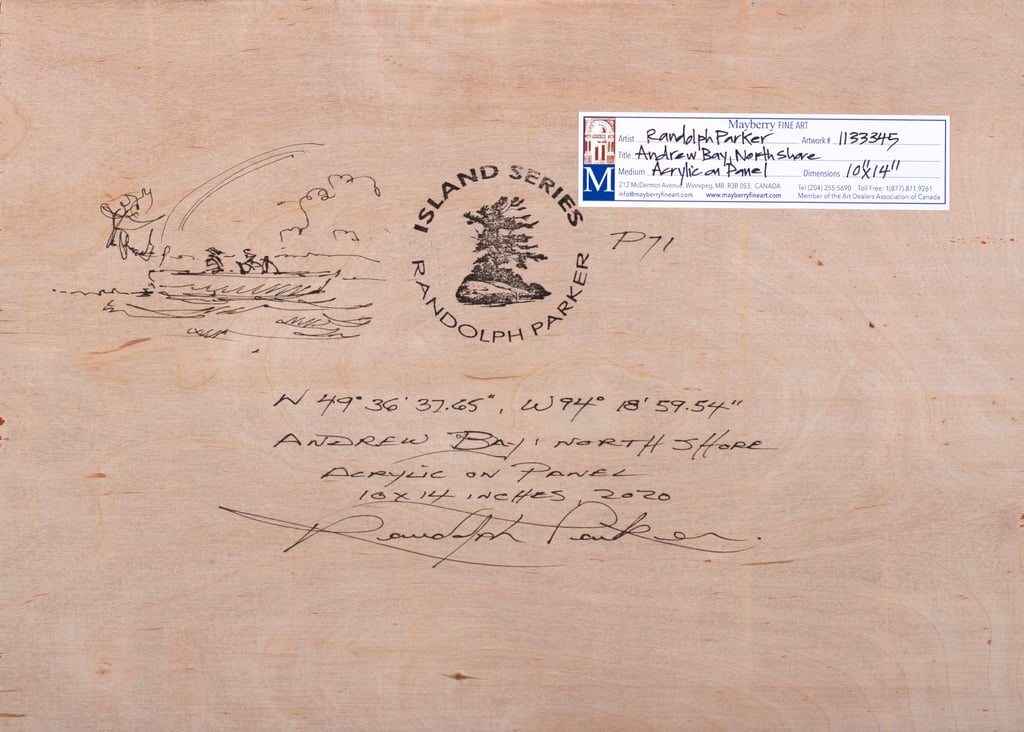 Mayberry FINE ART
Artist Randolph Parker Artwork # 1133345
Title Andrew Bay, North shore
Medium Acrylic on Panel Dimensions 10"x14"
M
212 McDermot Avenue, Winnipeg, MB, R3B 0S3, CANADA Tel (204) 255.5690 Toll Free: 1(877) 871.9261
info@mayberryfineart.com www.mayberryfineart.com Member of the Art Dealers Association of Canada
ISLAND SERIES
RANDOLPH PARKER
P71
N 49° 36' 37.65", W 94° 18' 59.54"
ANDREW BAY, NORTH SHORE
ACRYLIC ON PANEL
10 X 14 INCHES, 2020
Randolph Parker.